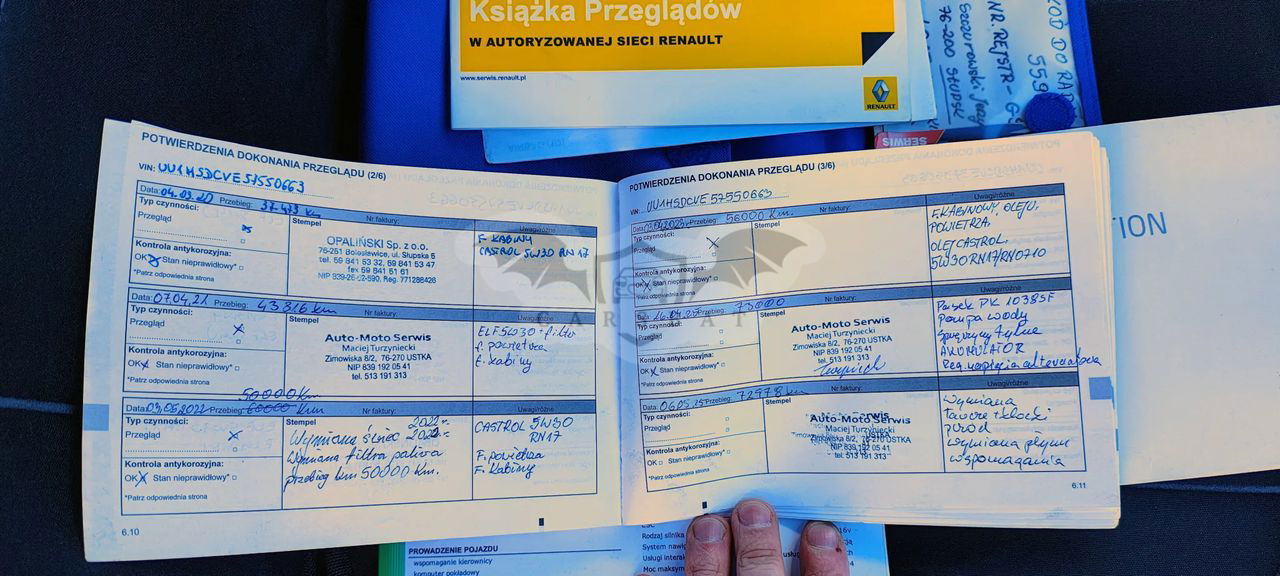 Książka Przeglądów
W AUTORYZOWANEJ SIECI RENAULT
www.serwis.renault.pl
RENAULT
SERWIS
KOD DO RA
NR. REJSTR - G
76-200 SŁUPSK
POTWIERDZENIA DOKONANIA PRZEGLĄDU (2/6)
VIN: UU1HSDCVE57550663
Data: 04.03.20 Przebieg: 37 473 km Nr faktury: Uwagi/różne
Typ czynności:
Przegląd
Stempel
OPALIŃSKI Sp. z o.o.
76-251 Bolesławice, ul. Słupska 5
tel. 59 841 53 32, 59 841 53 47
fax 59 841 61 61
F. KABINY
CASTROL 5W30 RN 17
Kontrola antykorozyjna:
OK Stan nieprawidłowy*
*Patrz odpowiednia strona
Data: 07.04.21 Przebieg: 43816 km Nr faktury: Uwagi/różne
Typ czynności:
Przegląd
Stempel
Auto-Moto Serwis
Maciej Turzyniecki
Zimowiska 8/2, 76-270 USTKA
NIP 839 192 05 41
tel. 513 191 313
ELF 5W30 + filtr
f. powietrza
f. kabiny
Kontrola antykorozyjna:
OK Stan nieprawidłowy*
*Patrz odpowiednia strona
50000 km
Data: 09.05.2022 Przebieg: 60000 km Nr faktury: Uwagi/różne
Typ czynności:
Przegląd
Stempel
Wymiana świec 2022r.
Wymiana filtra paliwa
przebieg km 50000 km.
CASTROL 5W30
RN17
F. powietrza
F. kabiny
Kontrola antykorozyjna:
OK Stan nieprawidłowy*
*Patrz odpowiednia strona
6.10
POTWIERDZENIA DOKONANIA PRZEGLĄDU (3/6)
VIN: UU1HSDCVE57550663
Przebieg: 56000 km. Nr faktury: Uwagi/różne
Typ czynności:
Przegląd
Stempel
F. KABINOWY, OLEJU,
POWIETRZA.
OLEJ CASTROL
5W30 RN17/RN0710
Kontrola antykorozyjna:
OK Stan nieprawidłowy*
*Patrz odpowiednia strona
Przebieg: 73000 Nr faktury: Uwagi/różne
Typ czynności:
Przegląd
Stempel
Auto-Moto Serwis
Maciej Turzyniecki
Zimowiska 8/2, 76-270 USTKA
NIP 839 192 05 41
tel. 513 191 313
Pasek PK 1038SF
Pompa wody
Sprężyny tylne
AKUMULATOR
Reg. napięcia alternatora
Kontrola antykorozyjna:
OK Stan nieprawidłowy*
*Patrz odpowiednia strona
Data: 06.05.25 Przebieg: 72978 km Nr faktury: Uwagi/różne
Typ czynności:
Przegląd
Stempel
Auto-Moto Serwis
Maciej Turzyniecki
Zimowiska 8/2, 76-270 USTKA
NIP 839 192 05 41
tel. 513 191 313
Wymiana
tarcze + klocki
przód
wymiana płynu
wspomagania
Kontrola antykorozyjna:
OK Stan nieprawidłowy*
*Patrz odpowiednia strona
6.11
TION
PROWADZENIE POJAZDU
wspomaganie kierownicy
komputer pokładowy
ESC
Rodzaj silnika
System nawig
Usługi interak
Moc maksym
16v